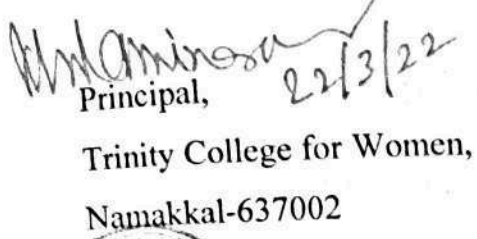 22/3/22
Principal,
Trinity College for Women,
Namakkal-637002